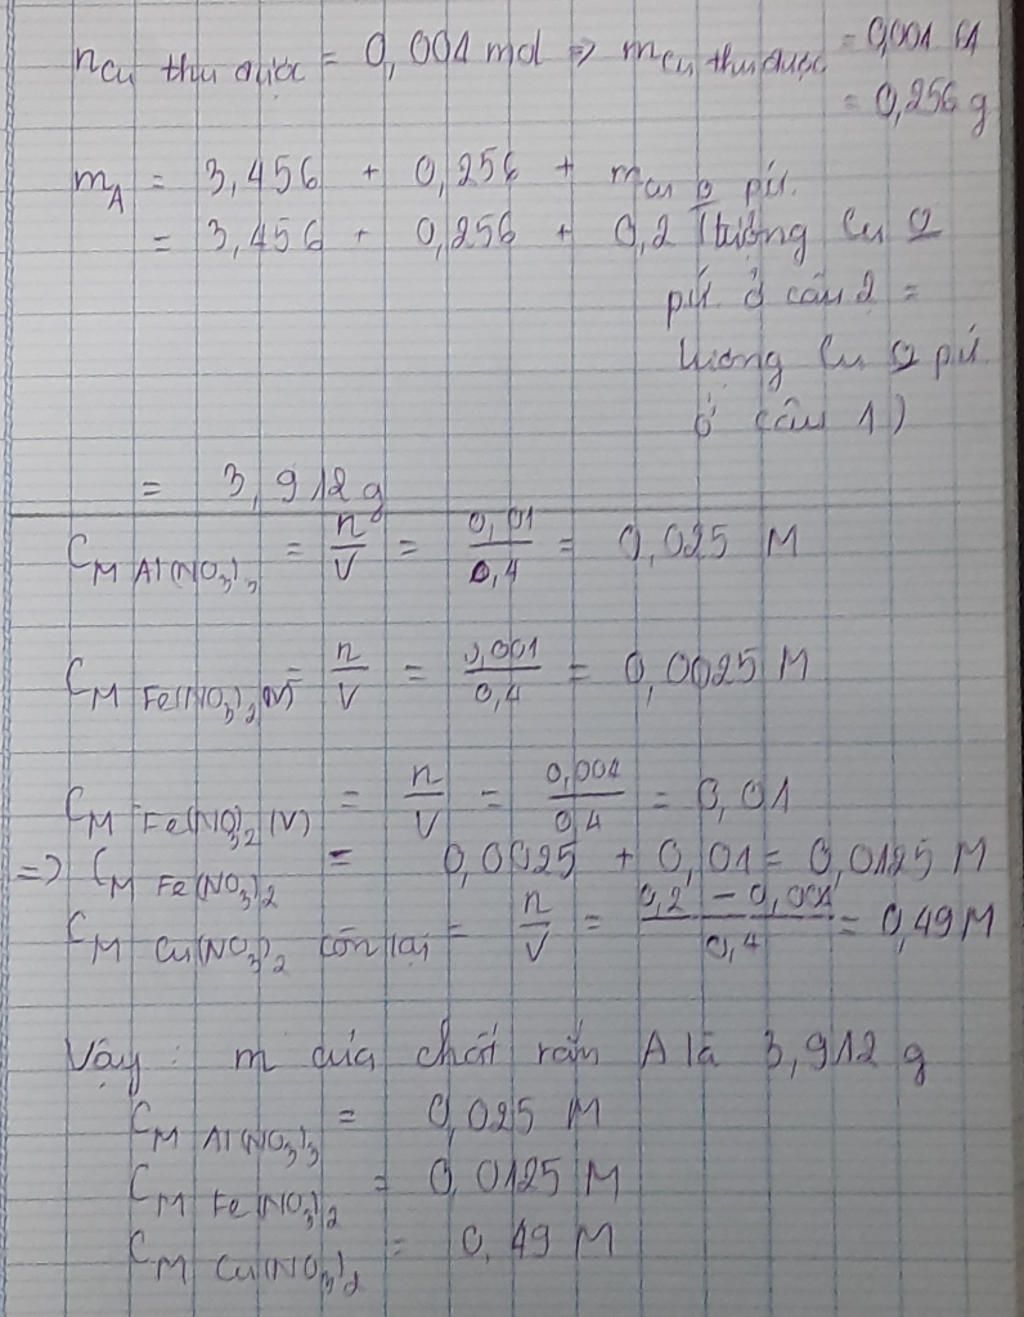 n Cu thu được = 0,004 mol => m Cu thu được = 0,004 . 64
= 0,256 g
m A = 3,456 + 0,256 + m Cu o pứ.
= 3,456 + 0,256 + 0,2 (lượng Cu o
pứ ở câu 2 =
lượng Cu o pứ
ở câu 1)
= 3,912 g
C M Al(NO3)3 = n/V = 0,01/0,4 = 0,025 M
C M Fe(NO3)2 (V) = n/V = 0,001/0,4 = 0,0025 M
C M Fe(NO3)2 (V) = n/V = 0,004/0,4 = 0,01
=> C M Fe(NO3)2 = 0,0025 + 0,01 = 0,0125 M
C M Cu(NO3)2 còn lại = n/V = 0,2 - 0,004/0,4 = 0,49 M
Vậy: m của chất rắn A là 3,912 g
C M Al(NO3)3 = 0,025 M
C M Fe(NO3)2 = 0,0125 M
C M Cu(NO3)2 = 0,49 M